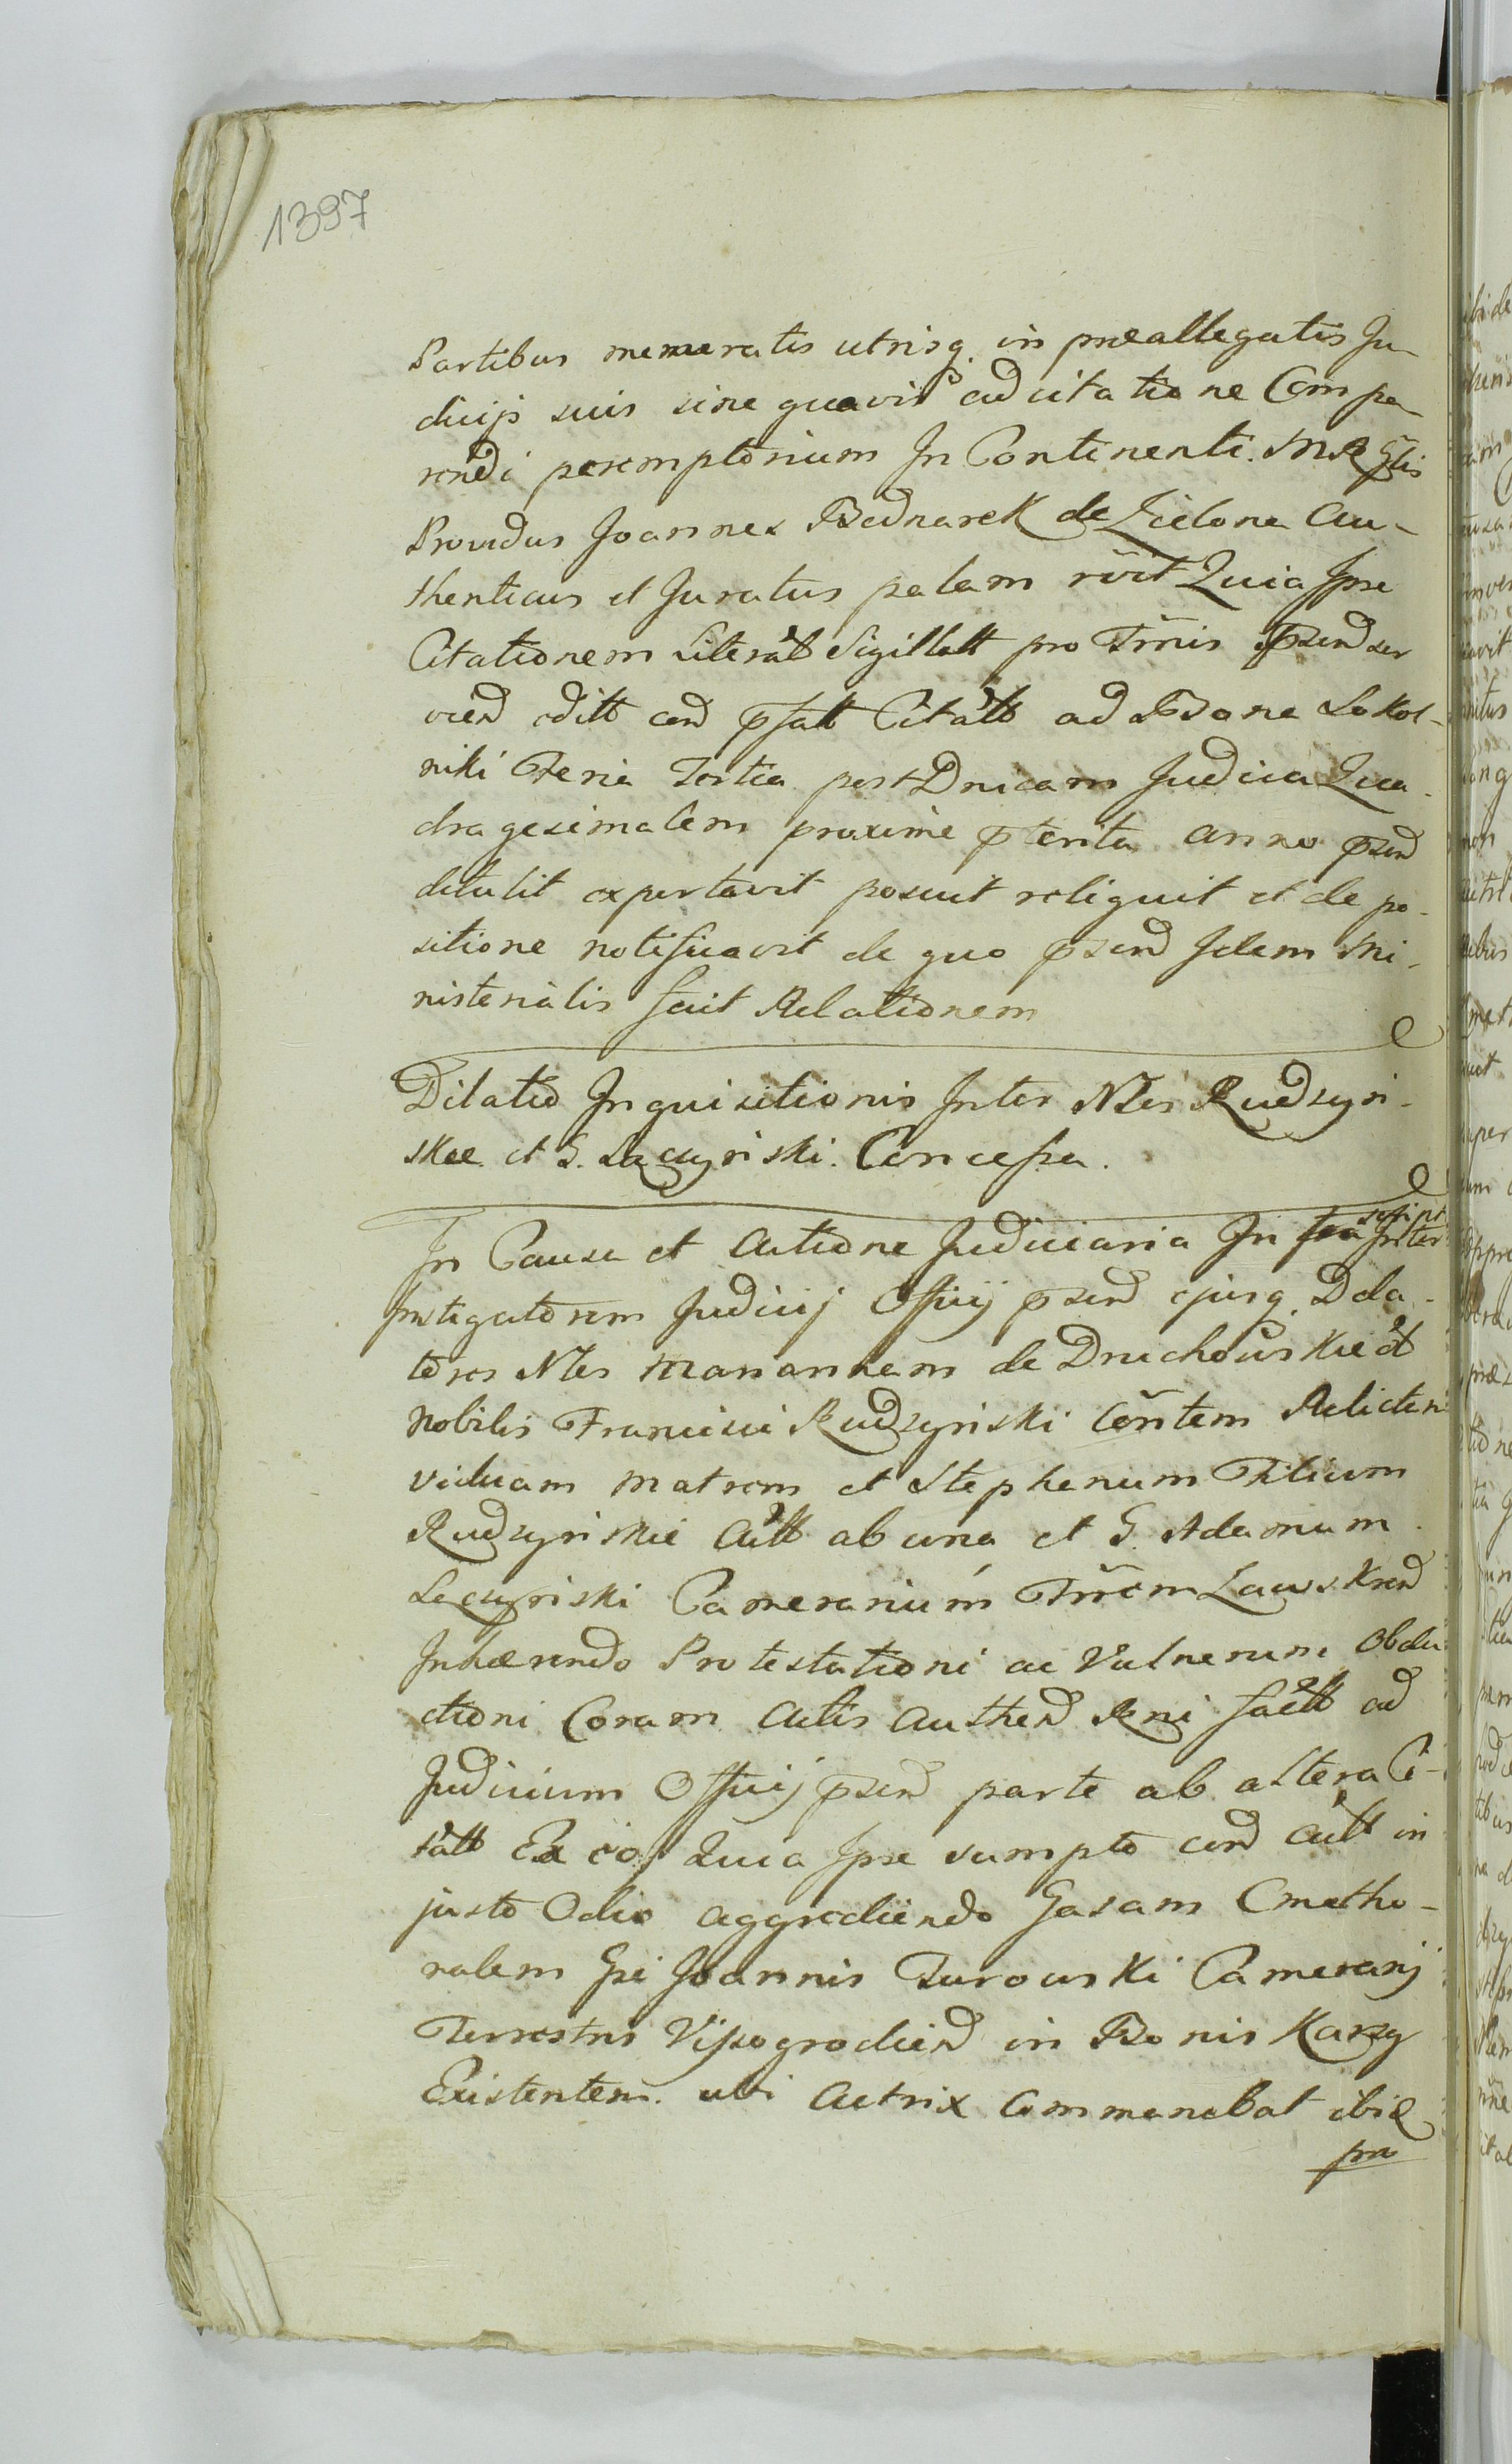 1397
Partibus memoratis utrisq. in præallegatis Ju-
dicijs suis sine quavis adcitatione Compa-
rendi peremptorium In Continenti.
Providus Joannes Bednarek de Zielona Au-
thenticus et Juratus palam rcit Quia Ipse
Citationem Literal Sigillatt pro Trnis psend ser
viend editt cend psatt Citatt ad Bona Sokol-
niki Feria Tertia post Dnicam Judica Qua-
dragesimalem proxime pterita anno psend
detulit exportavit posuit reliquit et de po-
sitione notificavit de quo psend Idem Mi-
nisterialis fecit Relationem
Dilatio Inquisitionis Inter Nles Rudzyn-
skie et G. Łączyński. Concessa.
In Causa et Actione Judiciaria In Inter
Instigatorem Judicij Officij psend ejusq. Dela-
tores Nles Mariannam de Druchowskie et
Nobilis Francisci Rudzynski Contem Relictam
viduam Matrem et Stephanum Filium
Rudzynskie Actt ab una et G. Adamum
Łączynski Camerarium Trrem
Inhærendo Protestationi ac Vulnerum Obdu
ctioni Coram Actis Authend Rni factt ad
Judicium Officij psend parte ab altera Ci-
tatt Ex eo, Quia Ipse sumpto cend Actt in
justo Odio aggrediendo Casam Cmetho-
nalem Gsi Joannis Turowski Camerarij
Terrestris Vissogrodiend in Bonis Karzy
Existentem. ubi Actrix Commanebat ibid
pro